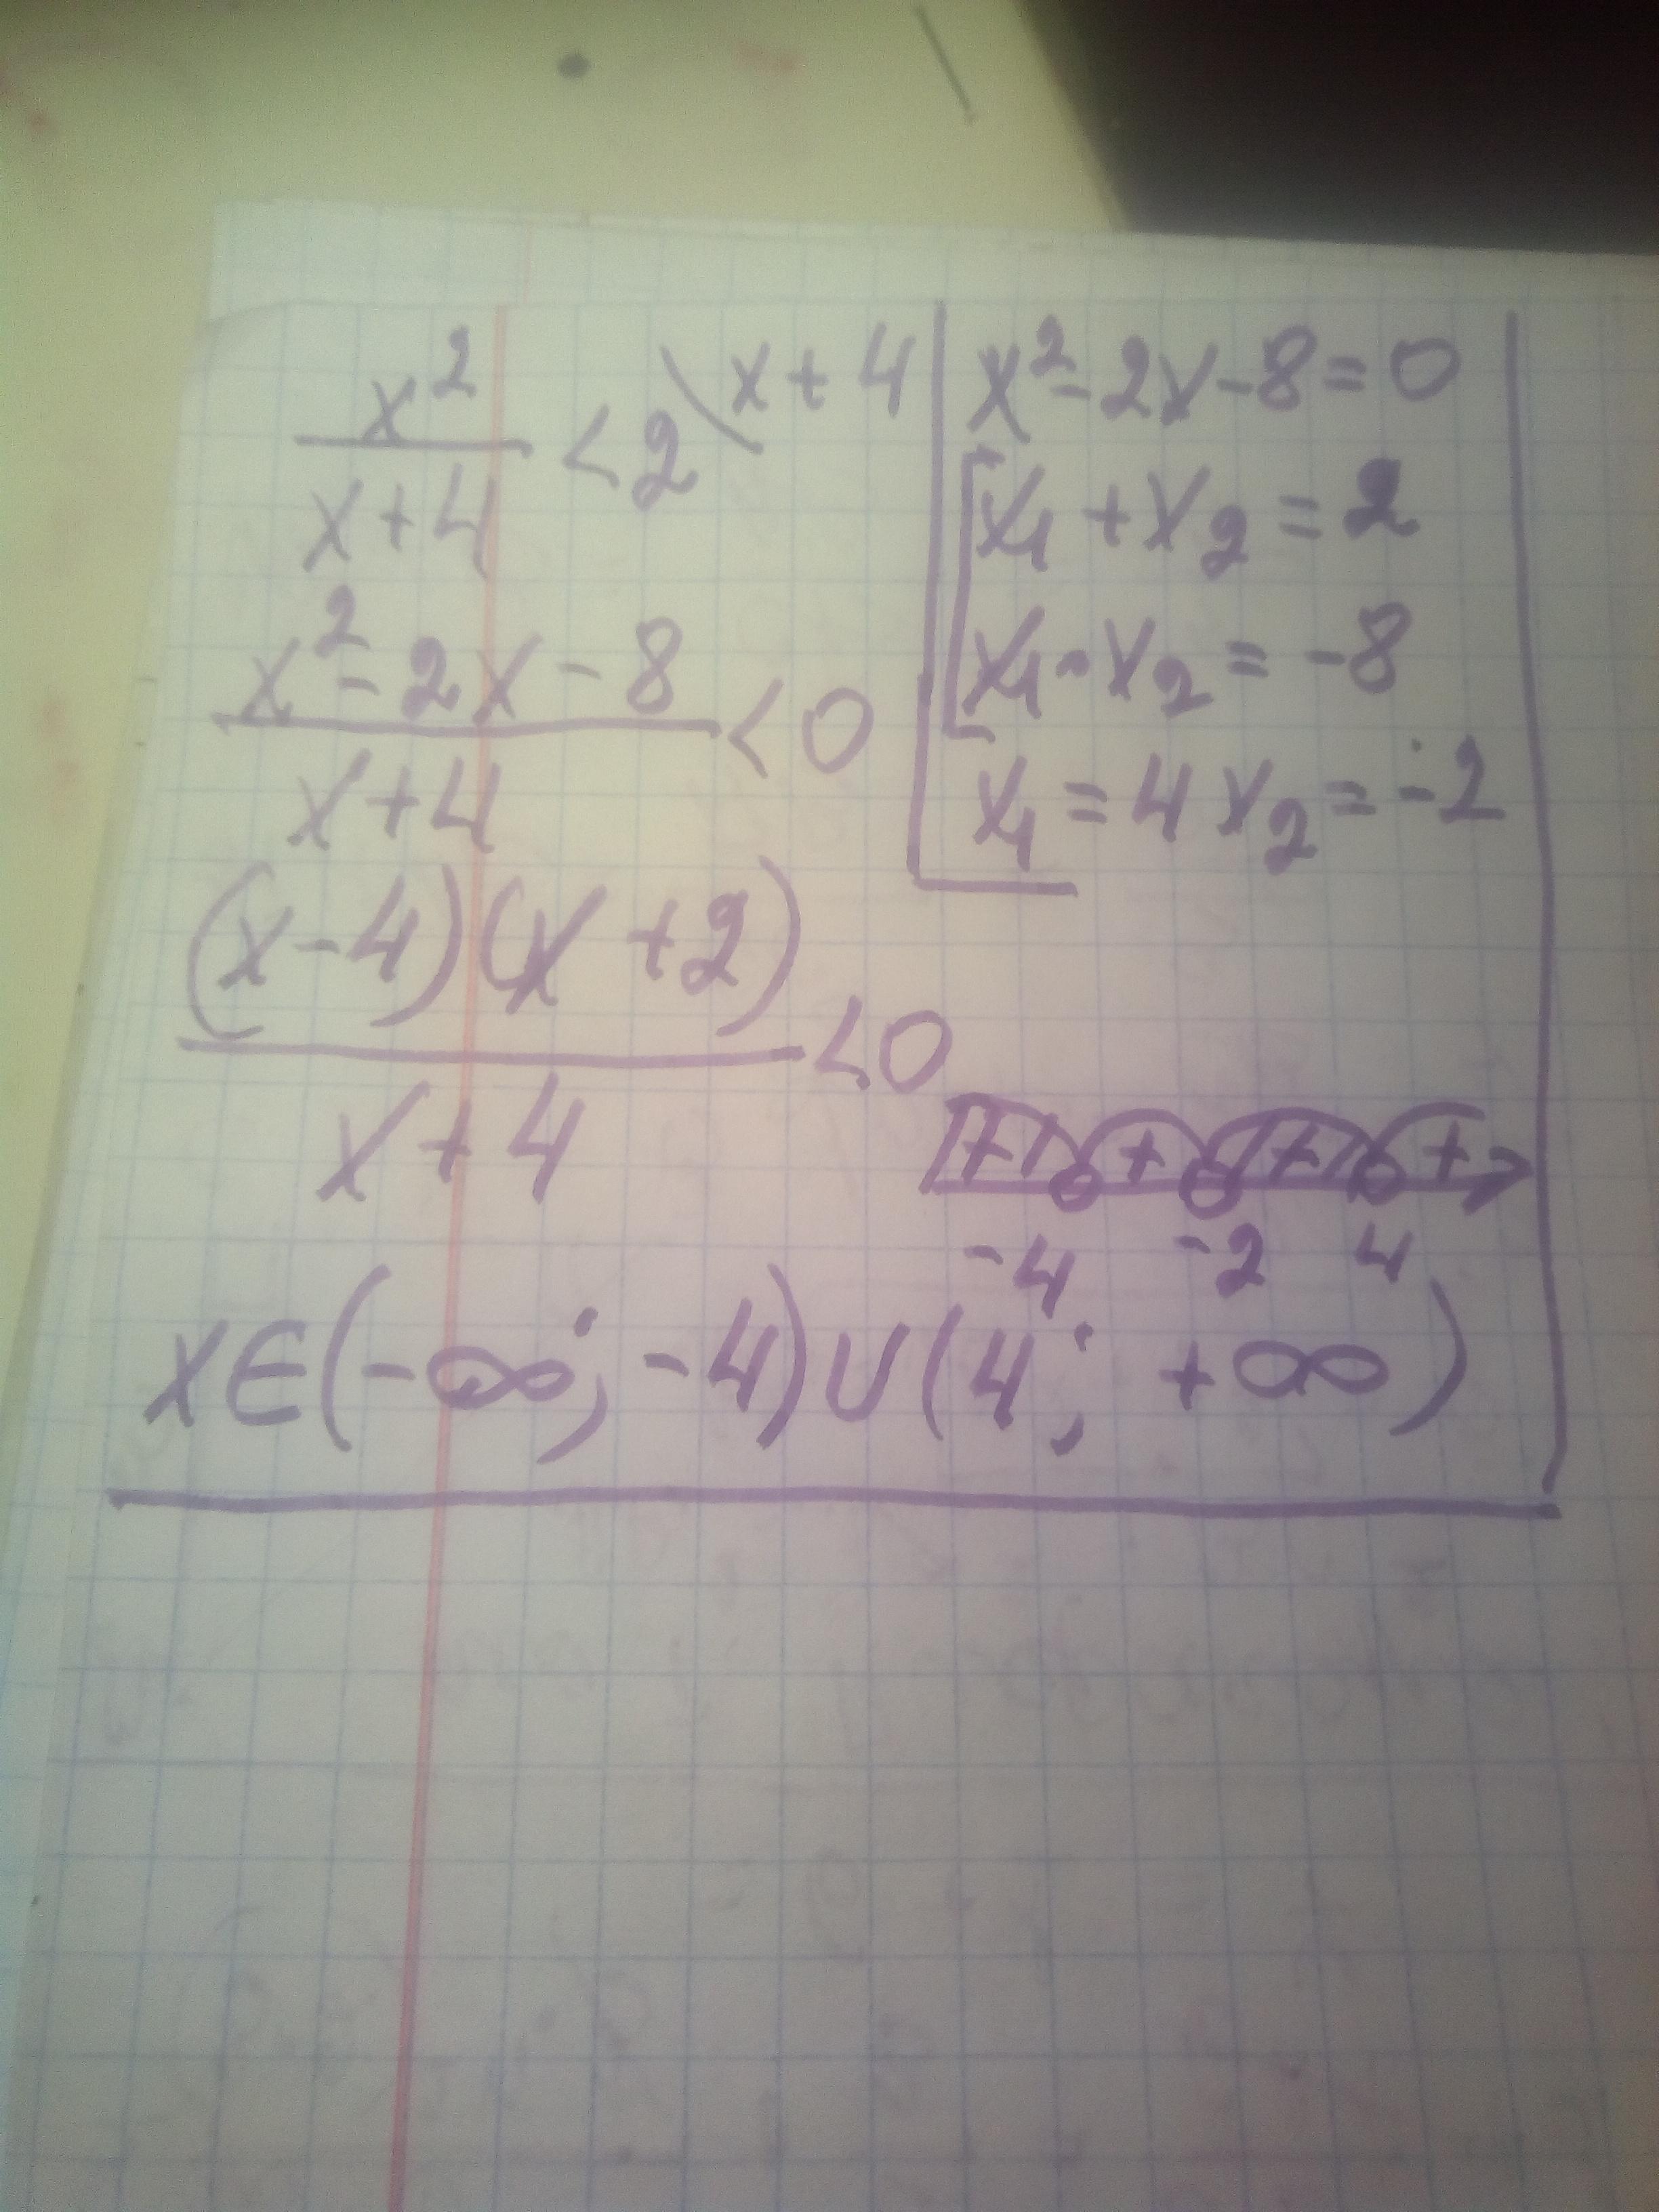 x²/(x+4) < 2 \ x+4
(x²-2x-8)/(x+4) < 0
((x-4)(x+2))/(x+4) < 0
x²-2x-8=0
x₁+x₂=2
x₁·x₂=-8
x₁=4 x₂=-2
+ + + +
-4 -2 4
x∈(-∞; -4)∪(4; +∞)